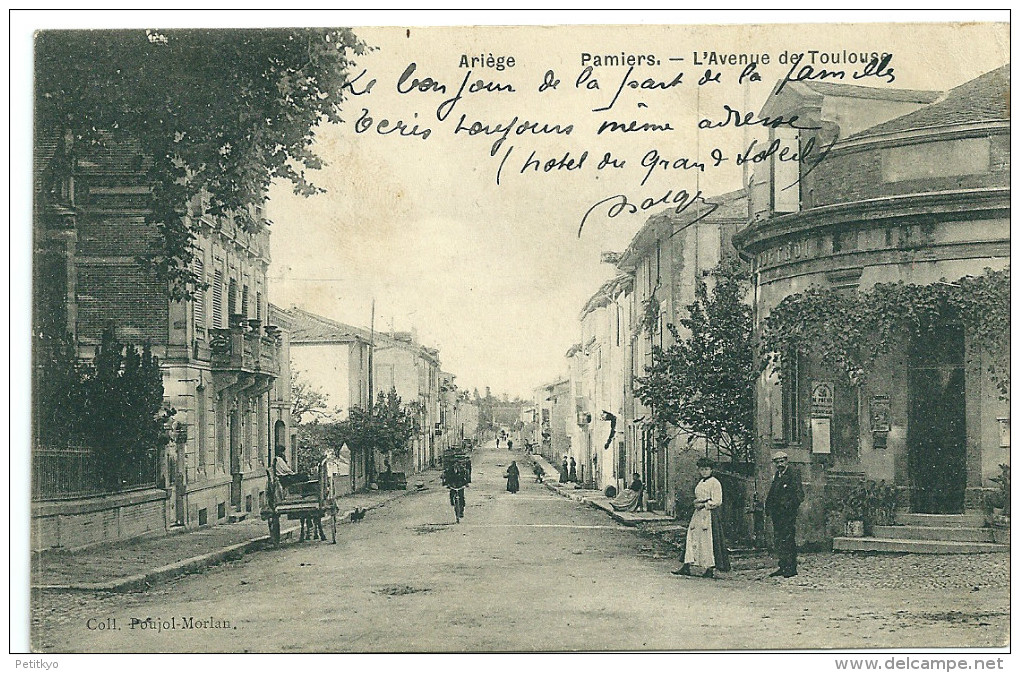 Ariège Pamiers. — L'Avenue de Toulouse
Le bonjour de la part de la famille
Ecris toujours même adresse
(hotel du Grand Soleil)
Coll. Poujol-Morlan.
Petitkyo
www.delcampe.net